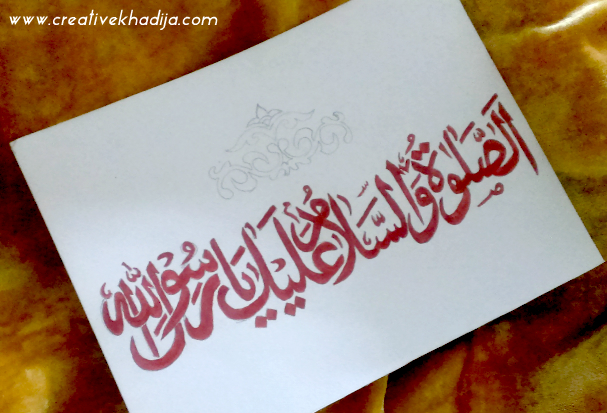 www.creativekhadija.com
الصَّلوٰةُ وَالسَّلامُ عليك يا رسُول الله